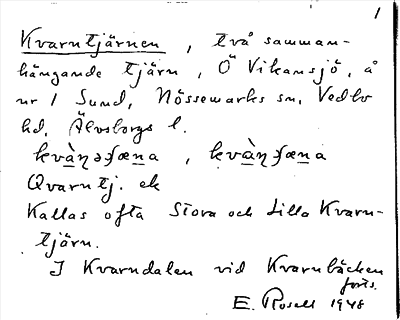 1
Kvarntjärnen, två samman-
hängande tjärn, Ö Vikansjö, å
nr 1 Sund, Nössemarks sn, Vedbo
hd, Älvsborgs l.
kvàṇəʃæna, kvàṇʃæna
Qvarntj. ek
Kallas ofta Stora och Lilla Kvarn-
tjärn.
I Kvarndalen vid Kvarnbäcken
forts.
E. Rosell 1948